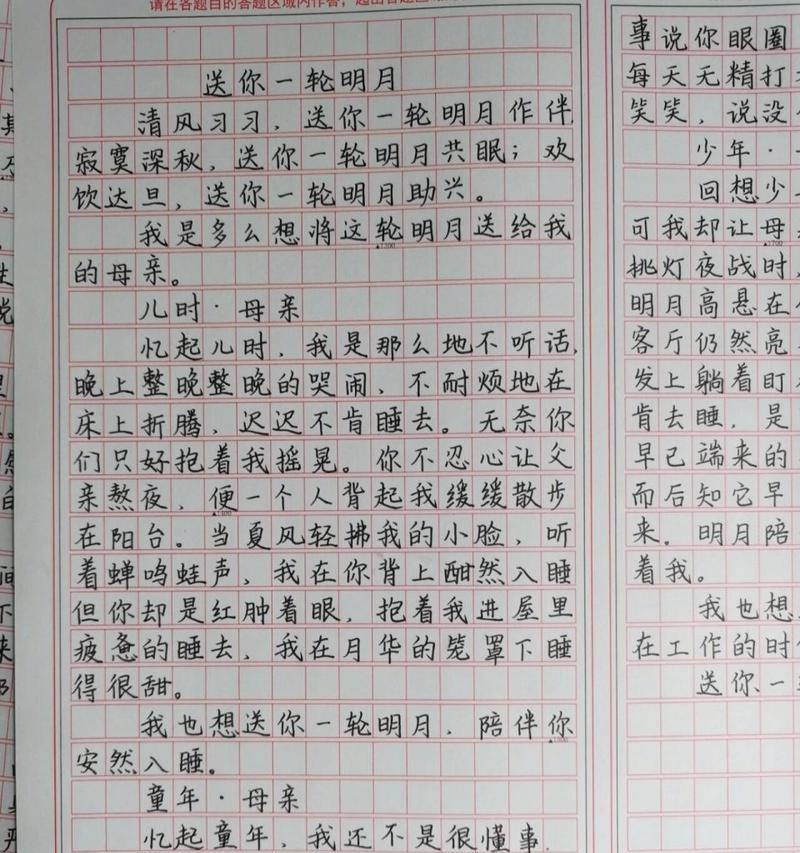 请在各题目的答题区域内作答，超出答题区域
送你一轮明月
清风习习，送你一轮明月作伴，
寂寞深秋，送你一轮明月共眠；欢
饮达旦，送你一轮明月助兴。
我是多么想将这轮明月送给我
的母亲。
儿时·母亲
忆起儿时，我是那么地不听话，
晚上整晚整晚的哭闹，不耐烦地在
床上折腾，迟迟不肯睡去。无奈你
们只好抱着我摇晃。你不忍心让父
亲熬夜，便一个人背起我缓缓散步
在阳台。当夏风轻拂我的小脸，听
着蝉鸣蛙声，我在你背上酣然入睡
但你却是红肿着眼，抱着我进屋里
疲惫的睡去，我在月华的笼罩下睡
得很甜。
我也想送你一轮明月，陪伴你
安然入睡。
童年·母亲
忆起童年，我还不是很懂事，
事说你眼圈
每天无精打
笑笑，说没
少年·
回想少
可我却让母
挑灯夜战时，
明月高悬在
客厅仍然亮
发上躺着盯
肯去睡，是
早已端来的
而后知它早
来。明月陪
着我。
我也想
在工作的时
送你一